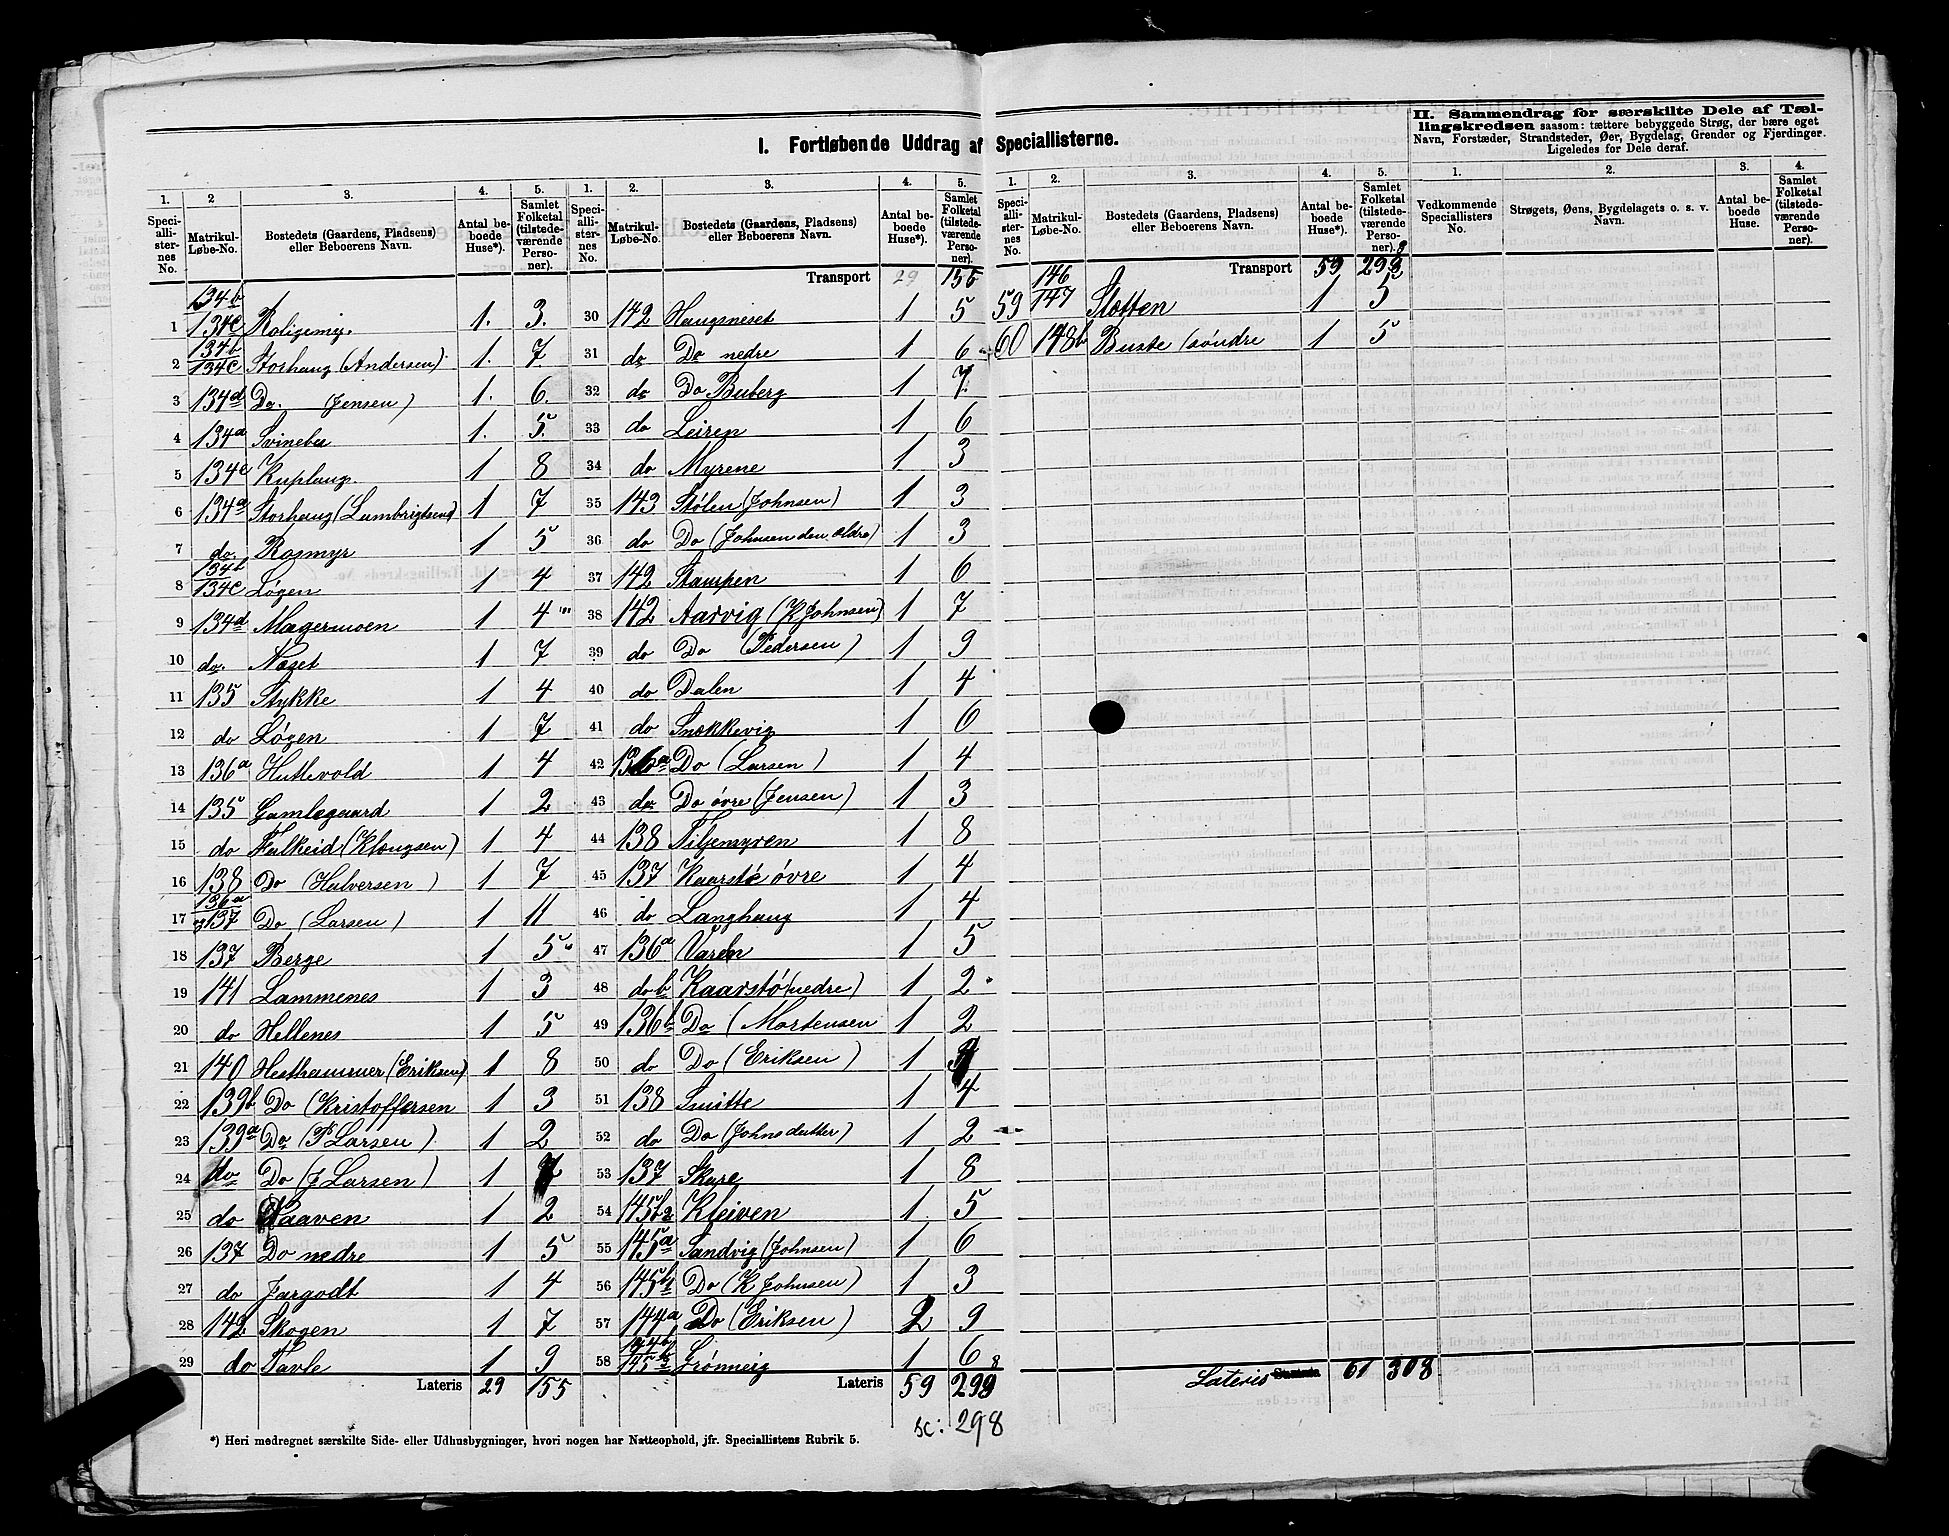 I. Fortløbende Uddrag af Speciallisterne.
II. Sammendrag for særskilte Dele af Tæl-
lingskredsen saasom: tættere bebyggede Strøg, der bære eget
Navn, Forstæder, Strandsteder, Øer, Bygdelag, Grender og Fjerdinger.
Ligeledes for Dele deraf.
1. 2 3. 4. 5.
Speci-alli-ster-nes No. Matrikul-Løbe-No. Bostedets (Gaardens, Pladsens) eller Beboerens Navn. Antal be-boede Huse*). Samlet Folketal (tilstede-værende Perso-ner).
134b
1 134c Roligemyr. 1. 3.
134b
2 134c Storhaug (Andersen) 1. 7.
3 134d Do. (Jensen) 1. 6.
4 134a Svinebu 1. 5.
5 134c Kuplaug. 1 8
6 134a Storhaug (Lambrigtsen) 1 7
7 do. Rosmyr 1 5
134b
8 134c Løgen 1 4
9 134d Magermoen 1 4
10 do. Næset 1 7
11 135 Stykke 1 4
12 do Løgen 1 7
13 136a Huttevold 1 4
14 135 Gamlegaard 1 2
15 do Falkeid (Klongsen) 1 4
16 138 Do (Halversen) 1 7
136a
17 og 137 Do (Larsen) 1 11
18 137 Berge 1 5
19 141 Lammenes 1 3
20 do Hellenes 1 5
21 140 Hesthammer (Eriksen) 1 8
22 139b Do (Kristoffersen 1 3
23 139a Do (P Larsen) 1 2
24 do Do (J Larsen) 1 7
25 do Haaven 1 2
26 137 Do nedre 1 5
27 do Jargodt 1 4
28 142 Skogen 1 7
29 do Tavle 1 9
Lateris 29 155
1. 2. 3. 4. 5.
Speci-alli-ster-nes No. Matrikul-Løbe-No. Bostedets (Gaardens, Pladsens) eller Beboerens Navn. Antal be-boede Huse*). Samlet Folketal (tilstede-værende Perso-ner).
Transport 29 155
30 142 Haugsneset 1 5
31 do Do nedre 1 6
32 do Do Buberg 1 7
33 do Leiren 1 6
34 do Myrene 1 3
35 143 Stølen (Johnsen) 1 3
36 do Do (Johnsen den Ældre) 1 3
37 142 Stampen 1 6
38 142 Aarvig (K Johnsen) 1 7
39 do Do (Pedersen) 1 9
40 do Dalen 1 4
41 do Snekkevig 1 6
42 136a Do (Larsen) 1 4
43 do Do øvre (Jensen) 1 3
44 138 Tiljemyren 1 8
45 137 Kaarstø øvre 1 4
46 do Langhaug 1 4
47 136a Varen 1 5
48 do b Kaarstø (nedre) 1 2
49 136b Do (Mortensen 1 2
50 do Do (Eriksen) 1
51 138 Smitte 1 4
52 do Do (Johnsdatter) 1 2
53 137 Skare 1 8
54 145b2 Kleiven 1 5
55 145a Sandvig (Johnsen) 1 6
56 145b1 Do (K Johnsen) 1 3
57 144a Do (Eriksen) 2 9
144b
58 145b3 Grønneig 1 6
Lateris 59 299
sc: 298
1. 2. 3. 4. 5.
Speci-alli-ster-nes No. Matrikul-Løbe-No. Bostedets (Gaardens, Pladsens) eller Beboerens Navn. Antal be-boede Huse*). Samlet Folketal (tilstede-værende Perso-ner).
Transport 59 298
146
59 147 Slotten 1 5
60 148b Buste (søndre 1 5
Lateris Summa 61 308
1. 2. 3. 4.
Vedkommende Speciallisters No. Strøgets, Øens, Bygdelagets o. s. v. Navn. Antal be-boede Huse. Samlet Folketal (tilstede-værende Perso-ner).
*) Heri medregnet særskilte Side- eller Udhusbygninger, hvori nogen har Natteophold, jfr. Speciallistens Rubrik 5.